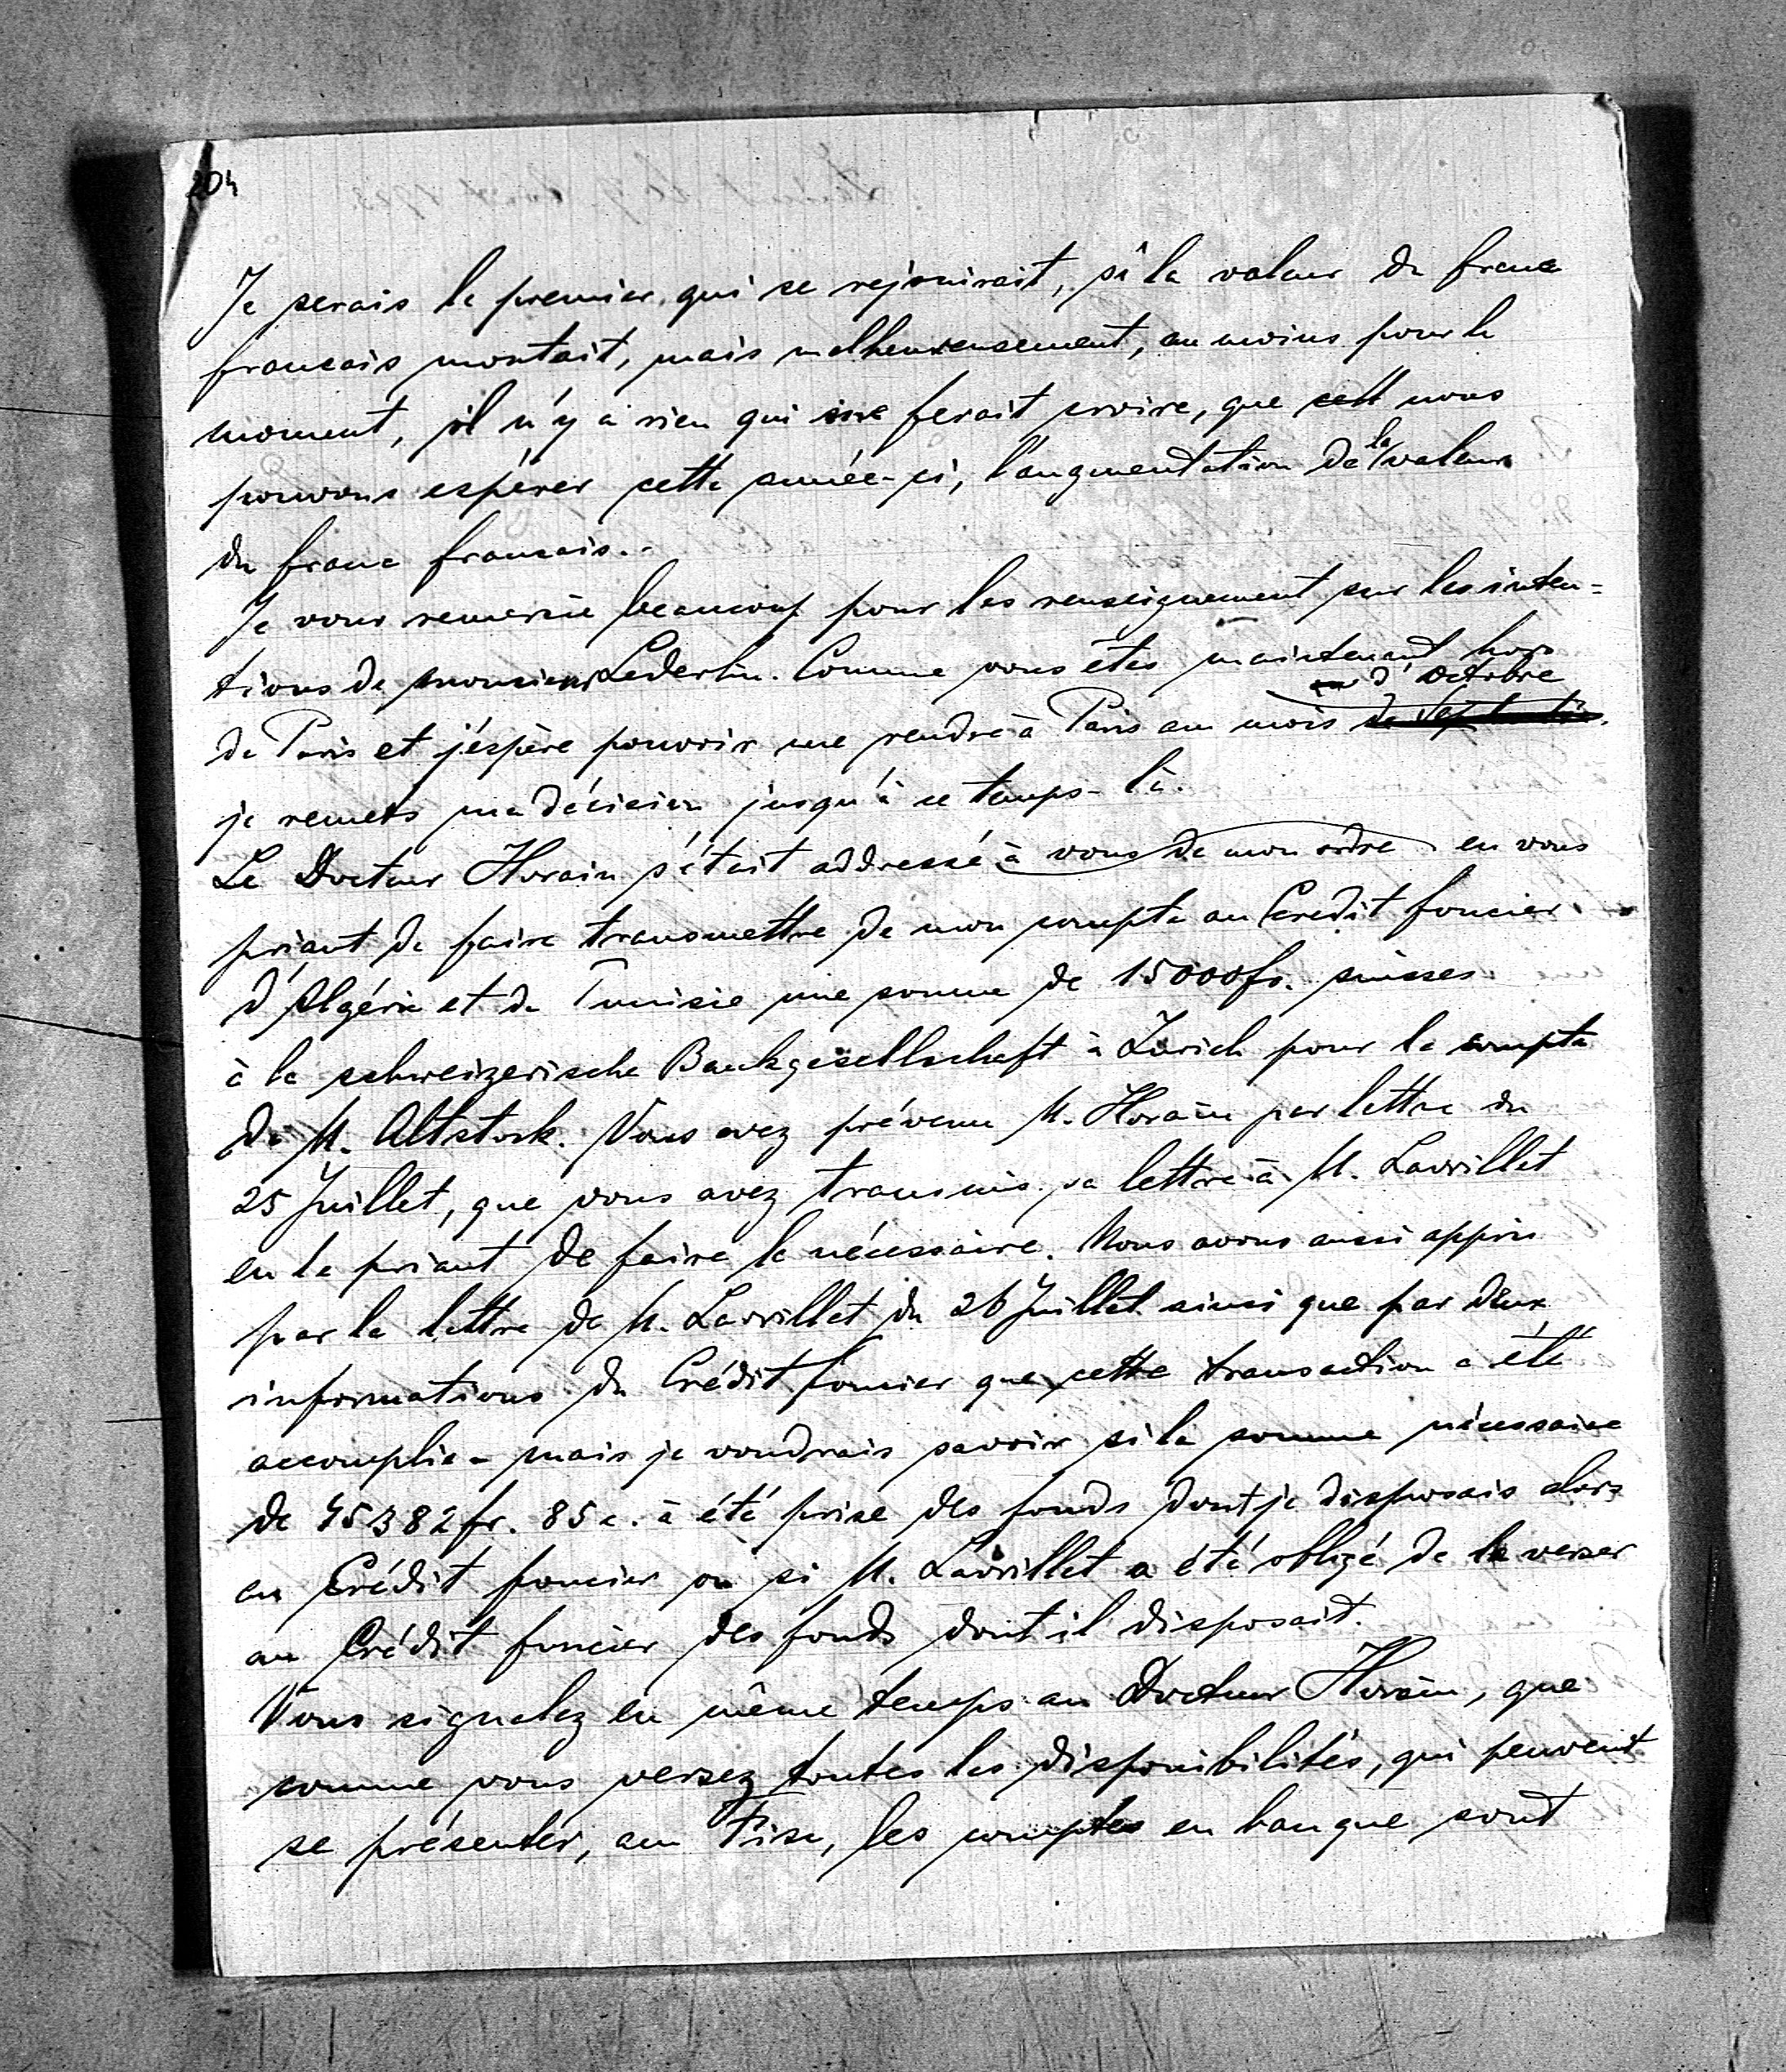 204
Je serais le premier qui se rejouirait, si la valeur du franc
francais montait, mais malheureusement, au moins pour le
moment, il n'y a rien qui ferait croire, que nous
pouvons espérer cette année-ci, l'augmentation de la valeur
du franc francais.-
Je vous remercie beaucoup pour les renseignement sur les inten=
tions de monsieur Lederlin. Comme vous êtes maintenant hors
de Paris et j'éspère pouvoir me rendre à Paris au mois d'octobre de Septembre.
je remets ma décision jusqu'à ce temps-là.
Le Docteur Horain s'était addressé à vous de mon ordre en vous
priant de faire transmettre de mon compte au Credit foncier
d'Algérie et de Tunisie une somme de 15000 fr. suisses
à la schweizerische Bankgesellschaft à Zürich pour le compte
de M. Altstock. Vous avez prévenu M. Horain par lettre du
25 Juillet, que vous avez transmis sa lettre à M. Lavrillet
en le priant de faire le nécessaire. Nous avons aussi appris
par la lettre de M. Lavrillet du 26 Juillet ainsi que par deux
informations du Crédit foncier que cette transaction a été
accomplie - mais je voudrais savoir si la somme nécessaire
de 45382 fr. 85 c. à été prise des fonds dont je disposais alors
au Crédit foncier ou si M. Lavrillet a été obligé de le verser
au Crédit foncier des fonds dont il disposait.
Vous signalez en même temps au Docteur Horain, que
comme vous versez toutes les disponibilités, qui peuvent
se présenter, au Fisc, les comptes en banque sont